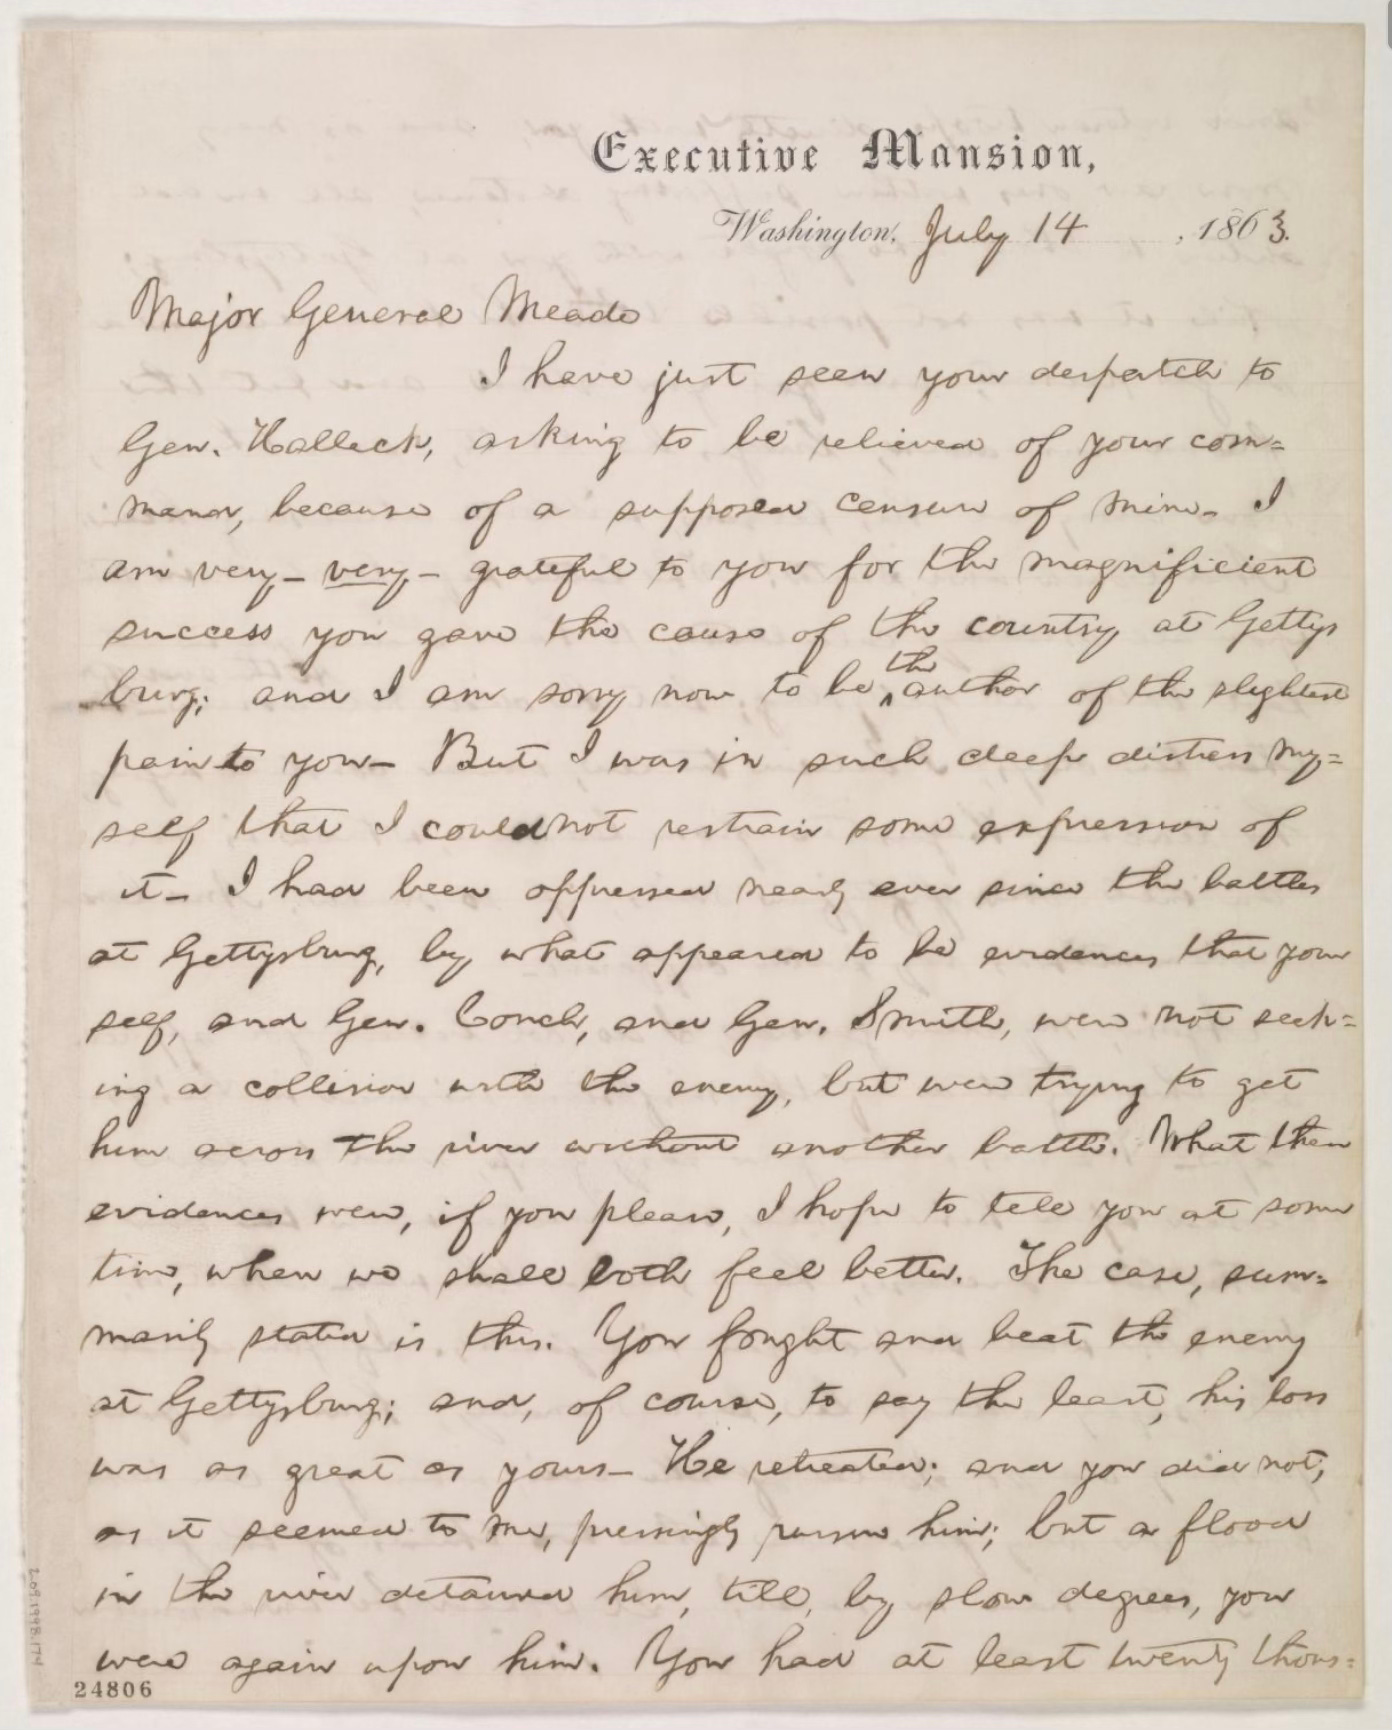 Executive Mansion,
Washington, July 14, 1863.
Major General Meade
I have just seen your despatch to
Gen. Halleck, asking to be relieved of your com=
mand, because of a supposed censure of mine. I
am very_ very_ grateful to you for the magnificient
success you gave the cause of the country at Gettys
burg; and I am sorry now to be the author of the slightest
pain to you_ But I was in such deep distress my=
self that I could not restrain some expression of
it_ I had been oppressed nearly ever since the battles
at Gettysburg, by what appeared to be evidences that your
self, and Gen. Couch, and Gen. Smith, were not seek=
ing a collision with the enemy, but were trying to get
him across the river without another battle. What these
evidences were, if you please, I hope to tell you at some
time, when we shall both feel better. The case, sum=
marily stated is this. You fought and beat the enemy
at Gettysburg; and, of course, to say the least, his loss
was as great as yours_ He retreated; and you did not,
as it seemed to me, pressingly pursue him; but a flood
in the river detained him, till, by slow degrees, you
were again upon him. You had at least twenty thous=
24806
209.1998.174